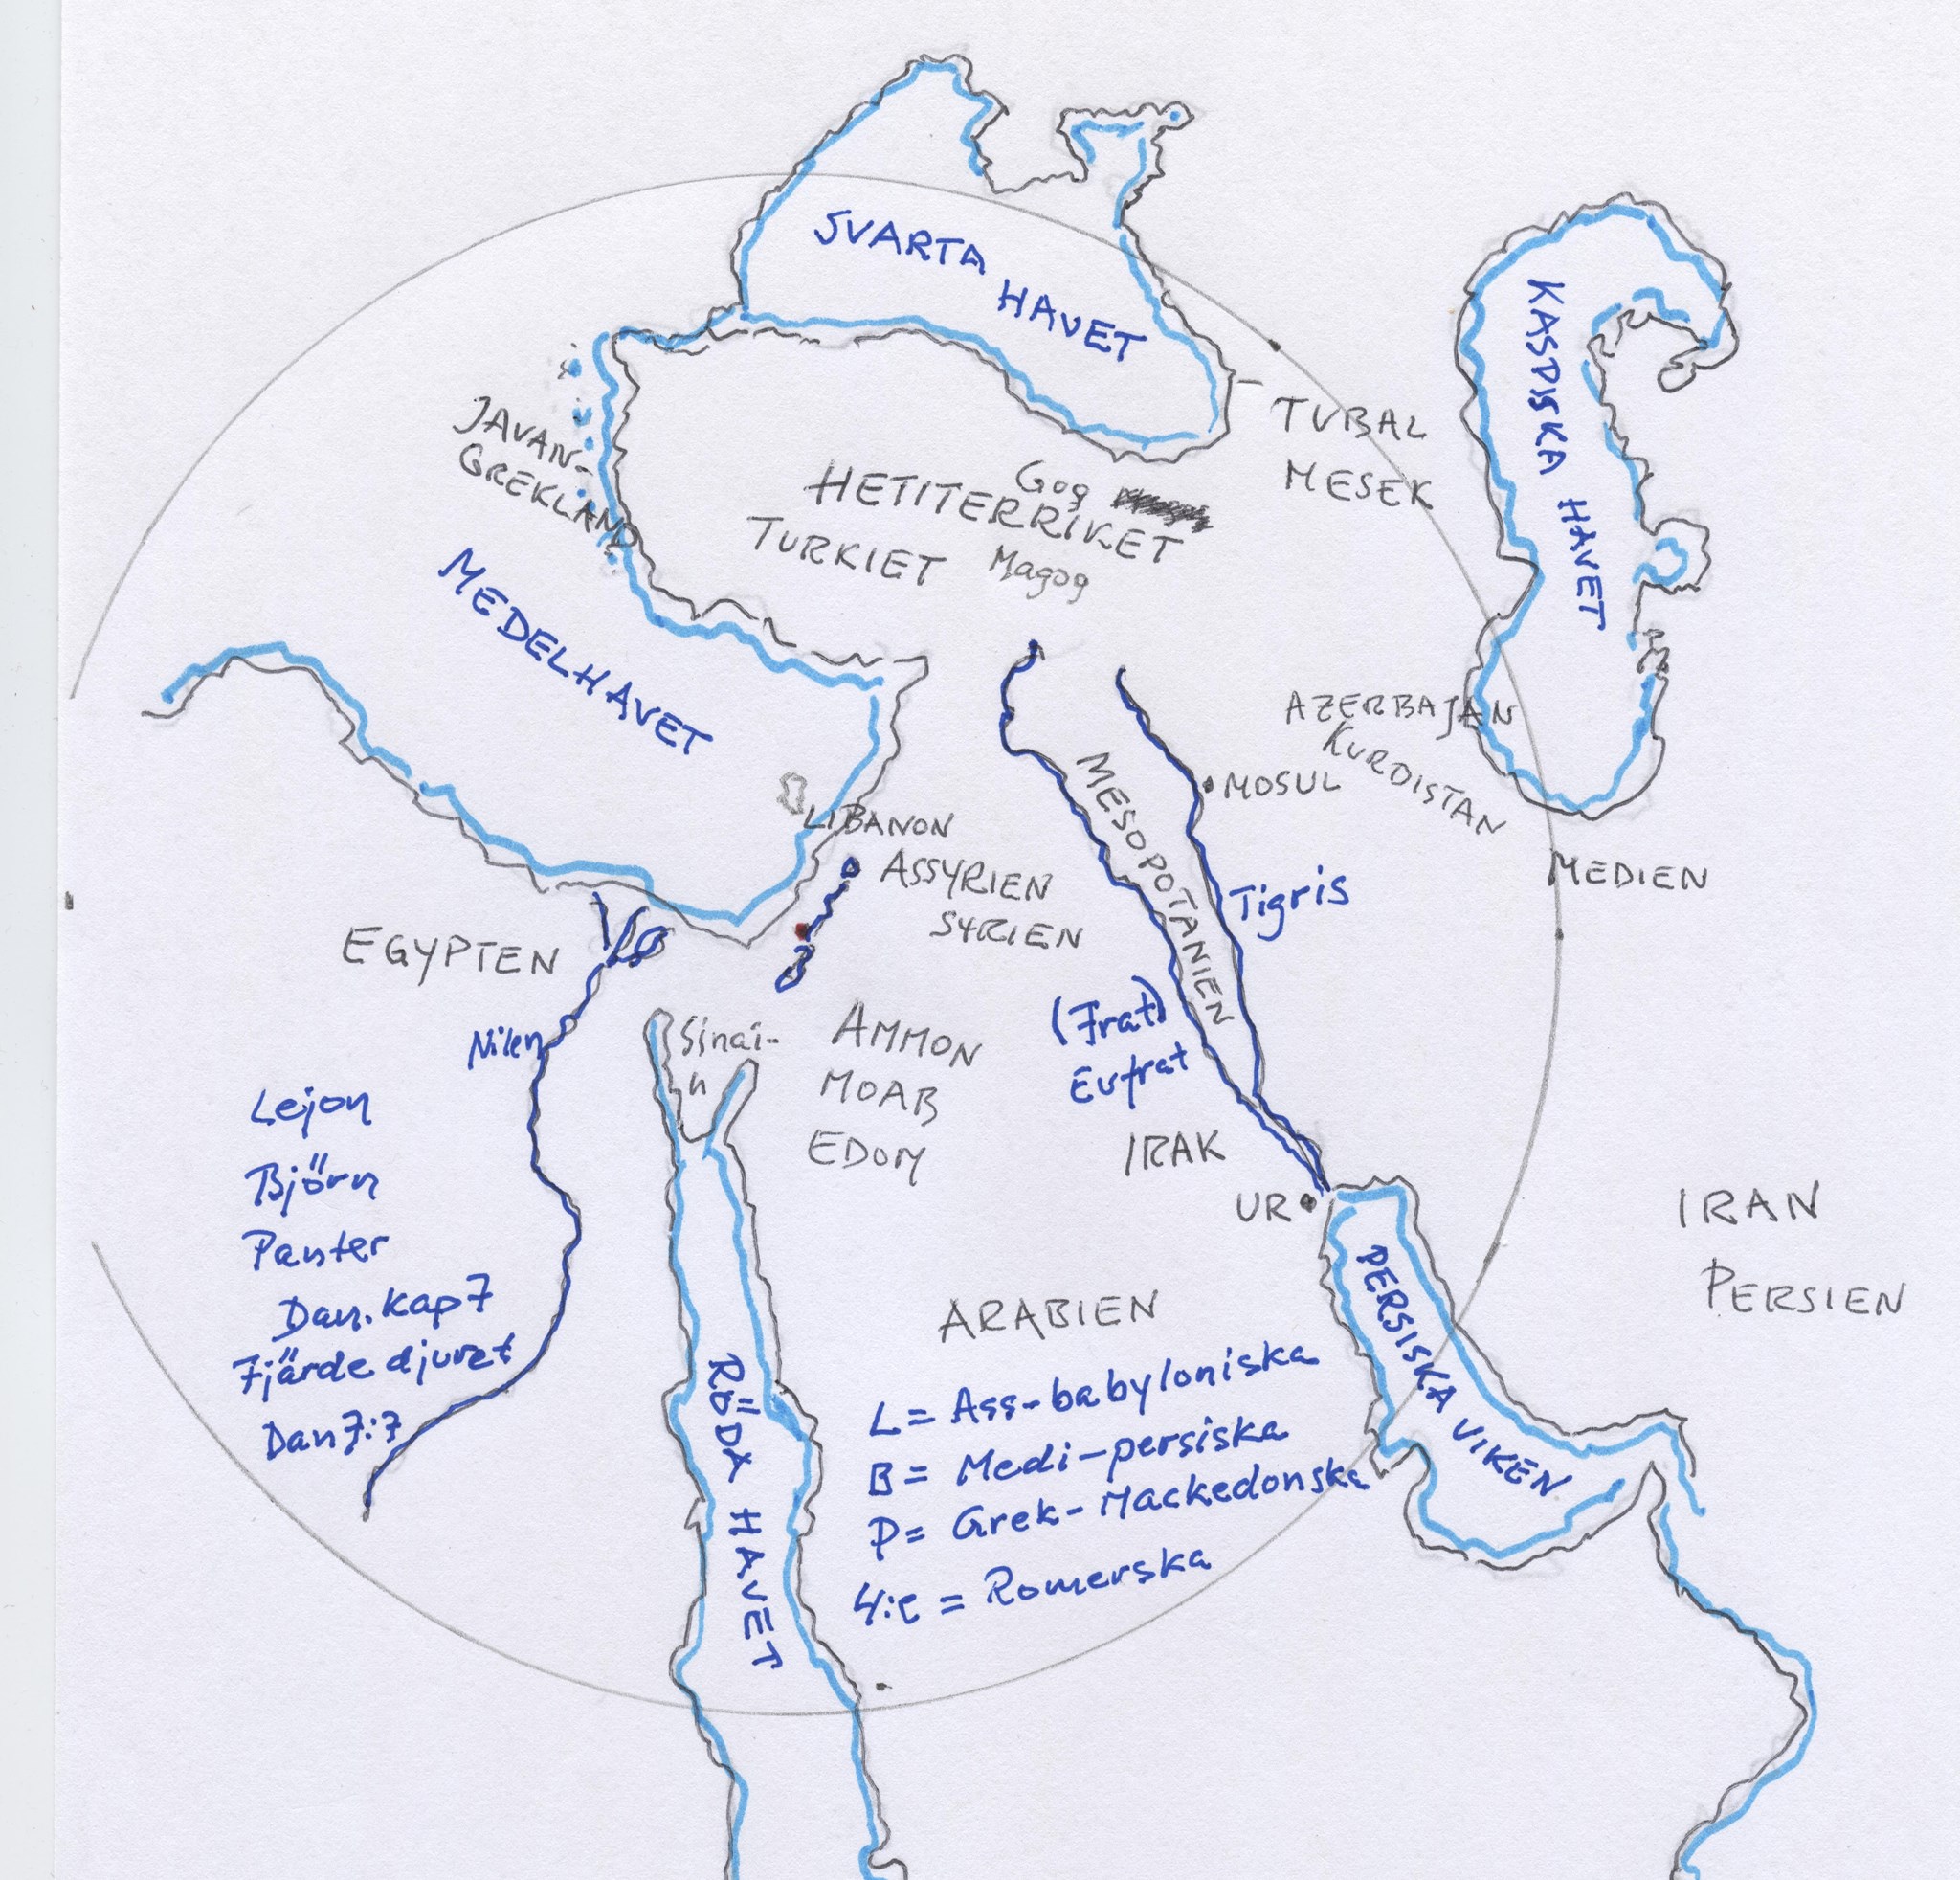 SVARTA
HAVET
KASPISKA HAVET
JAVAN-
GREKLAND
TUBAL
MESEK
Gog
HETITERRIKET
TURKIET
Magog
MEDELHAVET
AZERBAJAN
KURDISTAN
MOSUL
MESOPOTANIEN
LIBANON
ASSYRIEN
SYRIEN
MEDIEN
Tigris
EGYPTEN
Nilen
Sinai-
n
AMMON
MOAB
EDOM
(Frat)
Eufrat
IRAK
UR
IRAN
PERSIEN
PERSISKA VIKEN
Lejon
Björn
Panter
Dan. kap 7
Fjärde djuret
Dan 7:7
ARABIEN
RÖDA HAVET
L = Ass-babyloniska
B = Medi-persiska
P = Grek-Mackedonska
4:e = Romerska